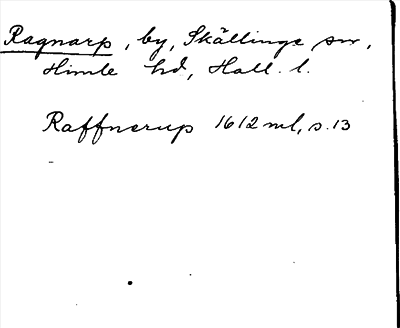 Ragnarp, by, Skällinge sn,
Himle hd, Hall. l.
Raffnerup 1612 ml, s. 13